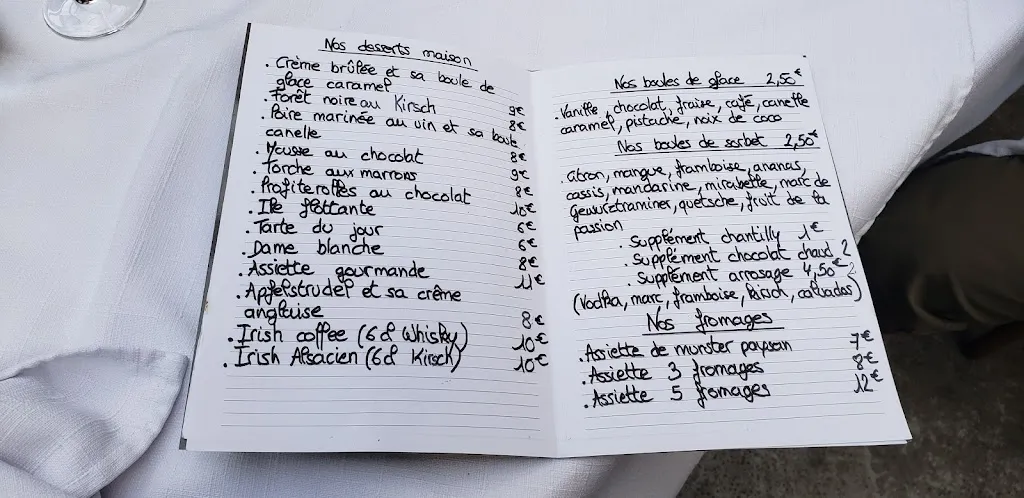 Nos desserts maison
. Crème brûlée et sa boule de
glace caramel 9€
. Forêt noire au Kirsch 8€
. Poire marinée au vin et sa boule
canelle 8€
. Mousse au chocolat 9€
. Torche aux marrons 8€
. Profiterolles au chocolat 10€
. Ile flottante 6€
. Tarte du jour 6€
. Dame blanche 8€
. Assiette gourmande 11€
. Apfelstrudel et sa crême
anglaise 8€
. Irish coffee (6cl Whisky) 10€
. Irish Alsacien (6cl Kirsch) 10€
Nos boules de glace 2,50€
. Vanille, chocolat, fraise, café, canelle
caramel, pistache, noix de coco
Nos boules de sorbet 2,50€
. Citron, mangue, framboise, ananas,
cassis, mandarine, mirabelle, marc de
Gewurztraminer, quetsche, fruit de la
passion
. Supplément chantilly 1€
. Supplément chocolat chaud 2
. Supplément arrosage 4,50€
(Vodka, marc, framboise, kirsch, calvados)
Nos fromages
. Assiette de munster paysan 7€
. Assiette 3 fromages 8€
. Assiette 5 fromages 12€